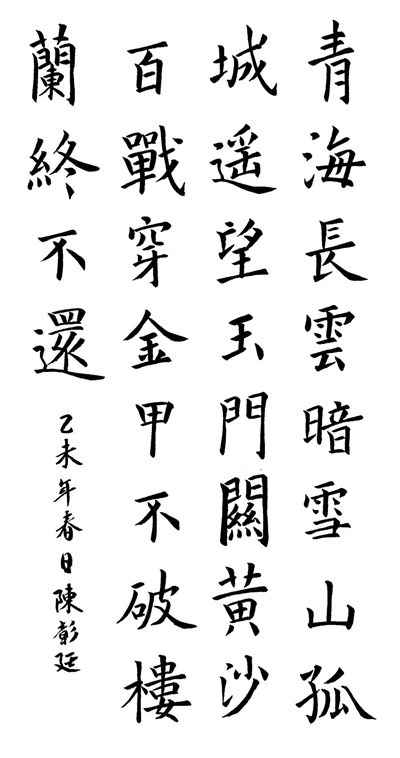 青海長雲暗雪山孤
城遥望玉門關黃沙
百戰穿金甲不破樓
蘭終不還
乙未年春日陳彰廷